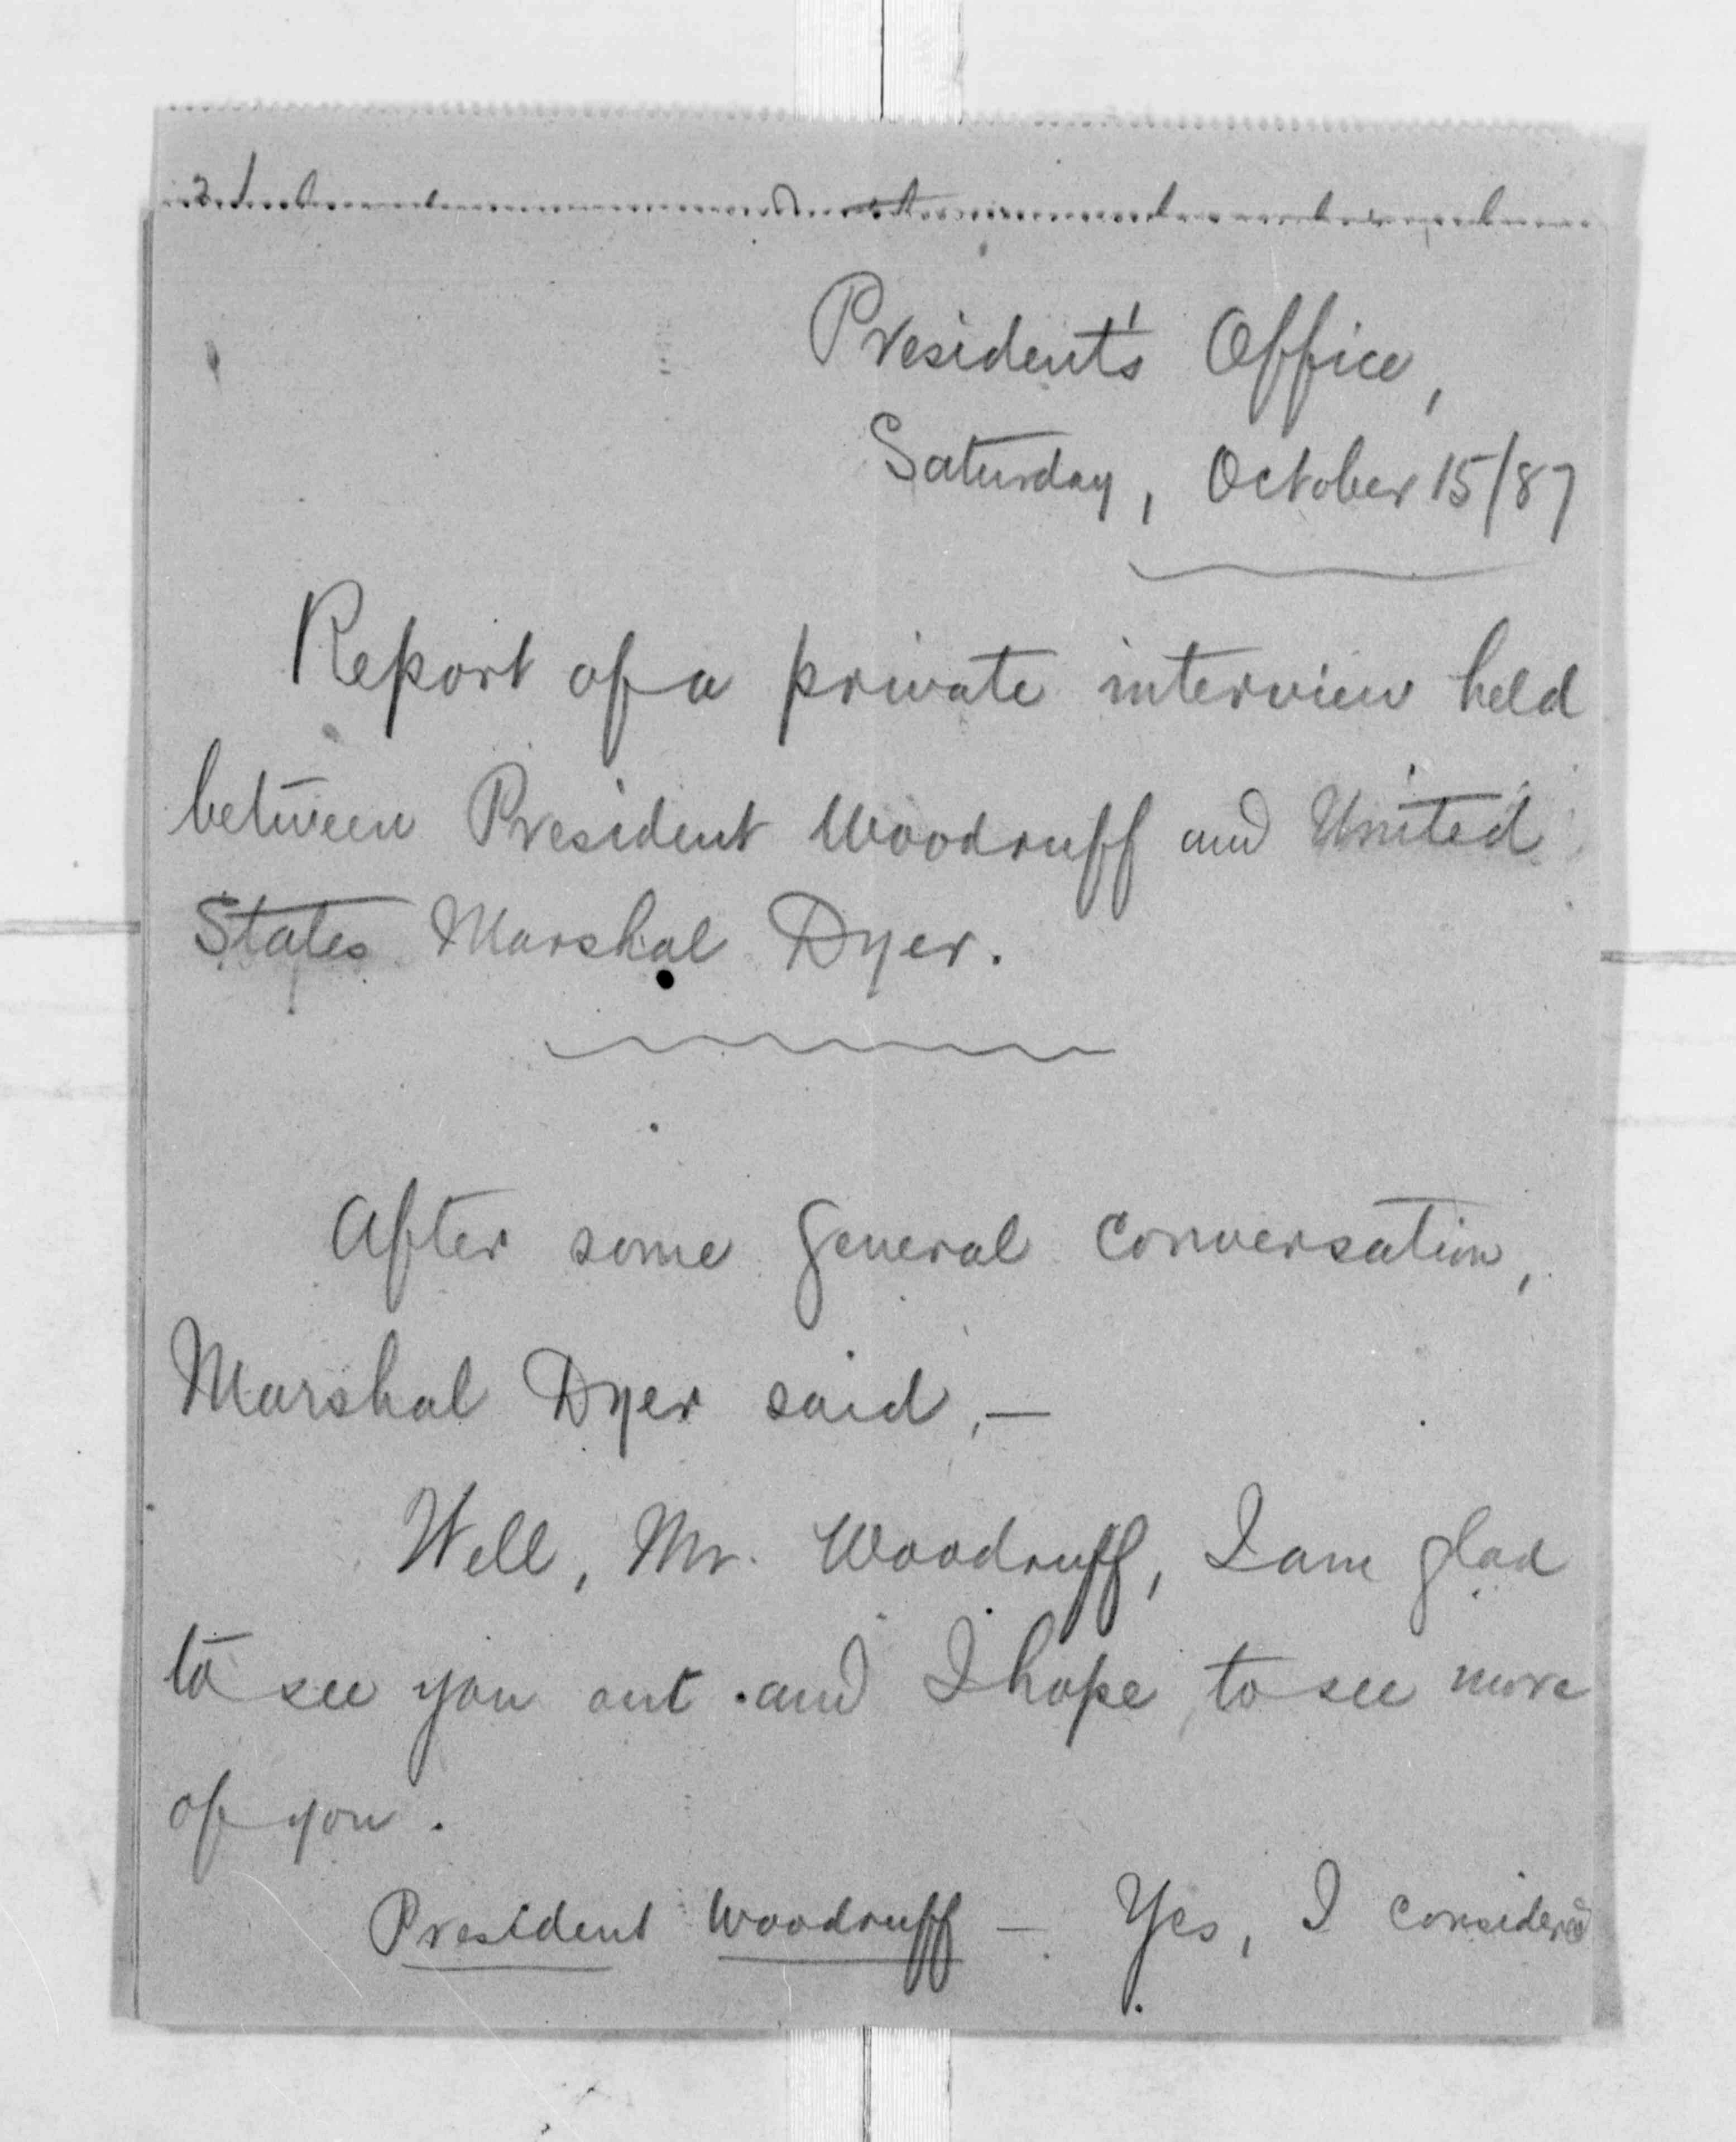 President's Office,
Saturday, October 15/87
Report of a private interview held
between President Woodruff and United
States Marshal Dyer.
After some general conversation,
Marshal Dyer said,—
Well, Mr. Woodruff, I am glad
to see you out and I hope to see more
of you.
President Woodruff — Yes, I considered